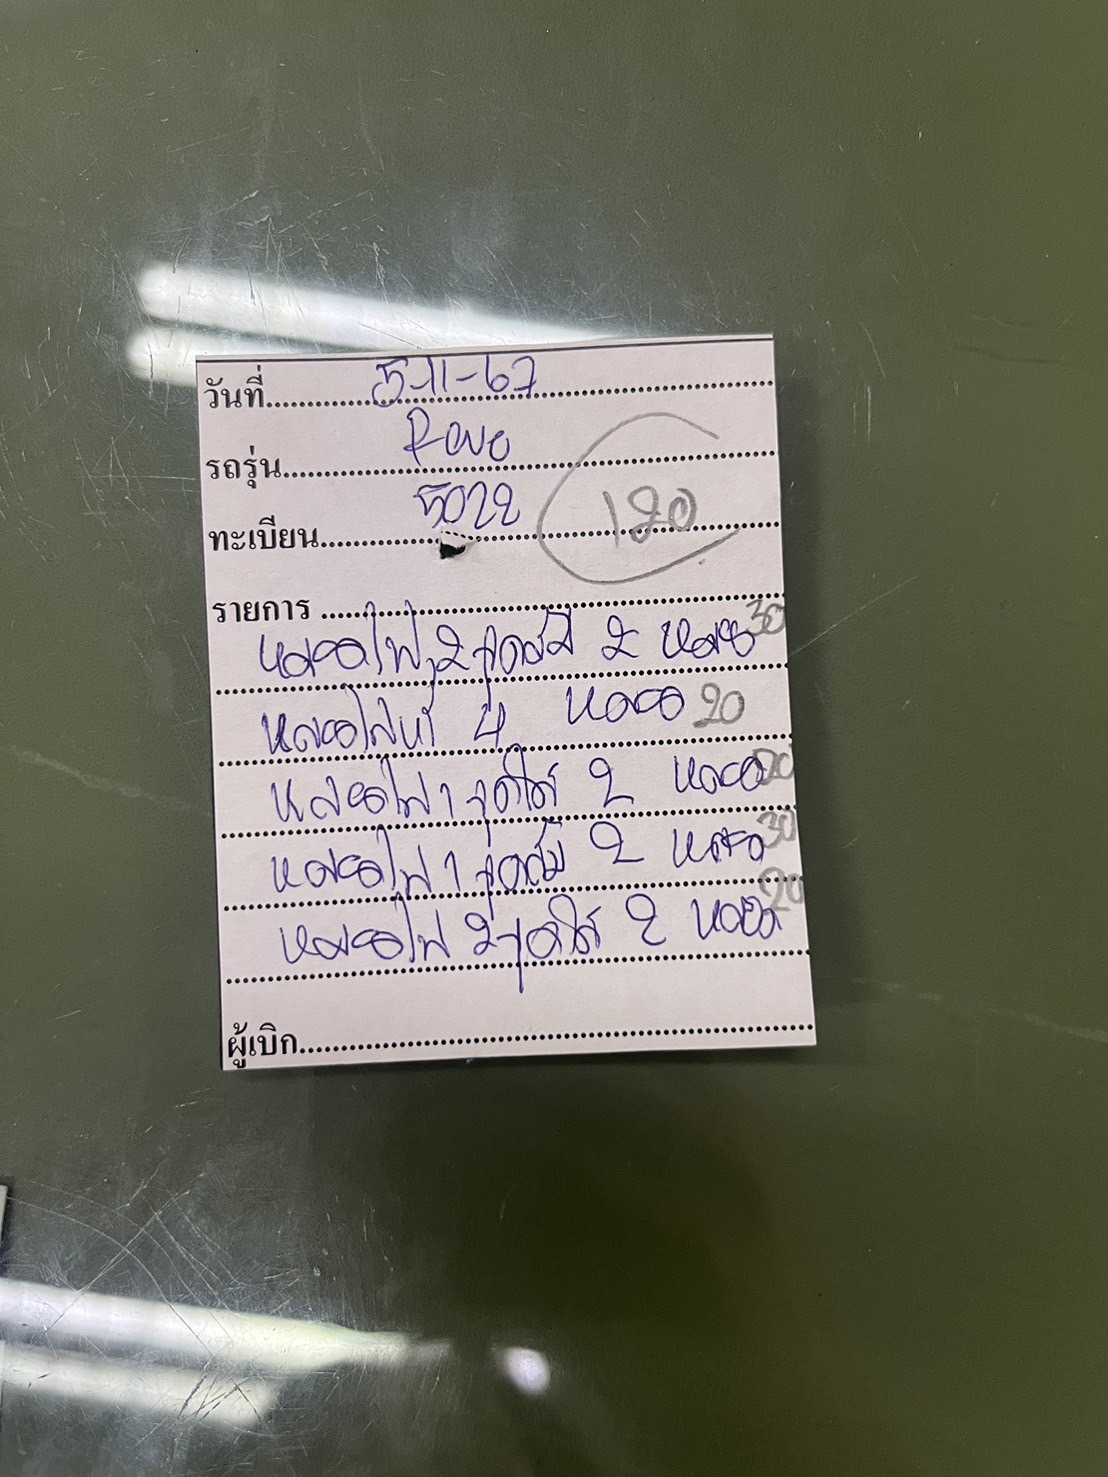 วันที่ 5-11-67
รถรุ่น Revo
ทะเบียน 5022
120
รายการ
หลอดไฟ 2 จุดส้ม 2 หลอด 30
หลอดเสียบ 4 หลอด 20
หลอดไฟ 1 จุดใส 2 หลอด 20
หลอดไฟ 1 จุดส้ม 2 หลอด 30
หลอดไฟ 2 จุดใส 2 หลอด 20
ผู้เบิก